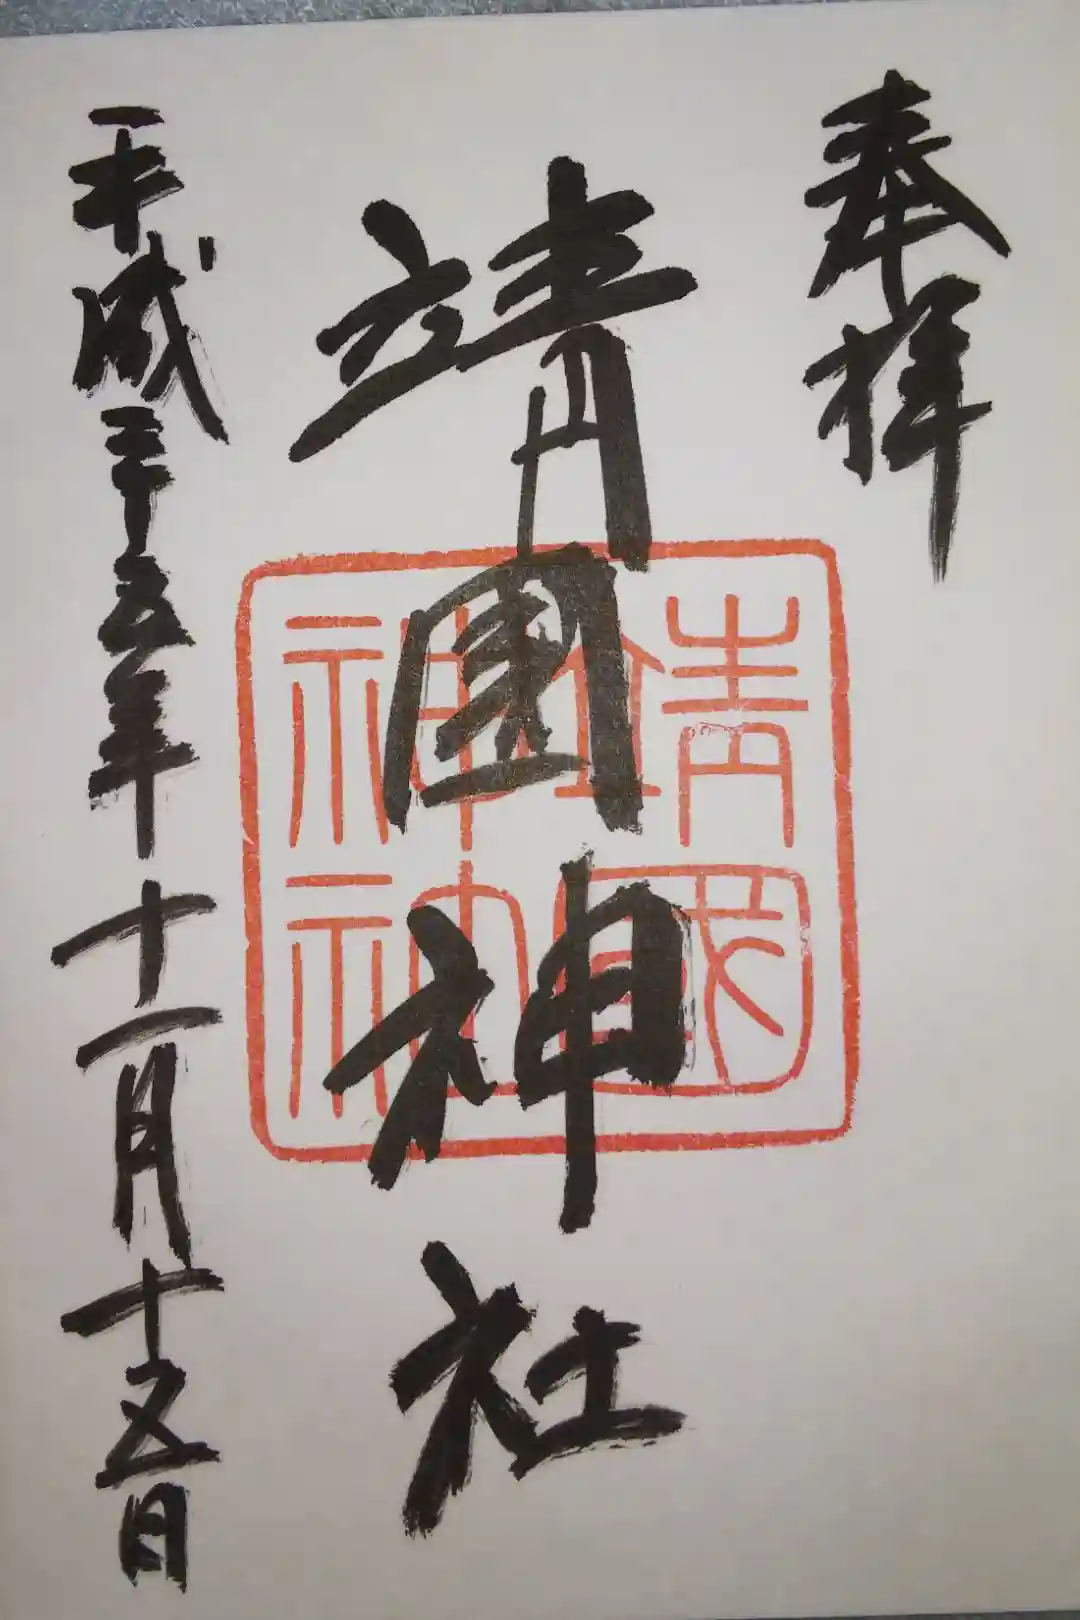 奉拝
靖國神社
靖國
神社
平成二十五年十一月十五日